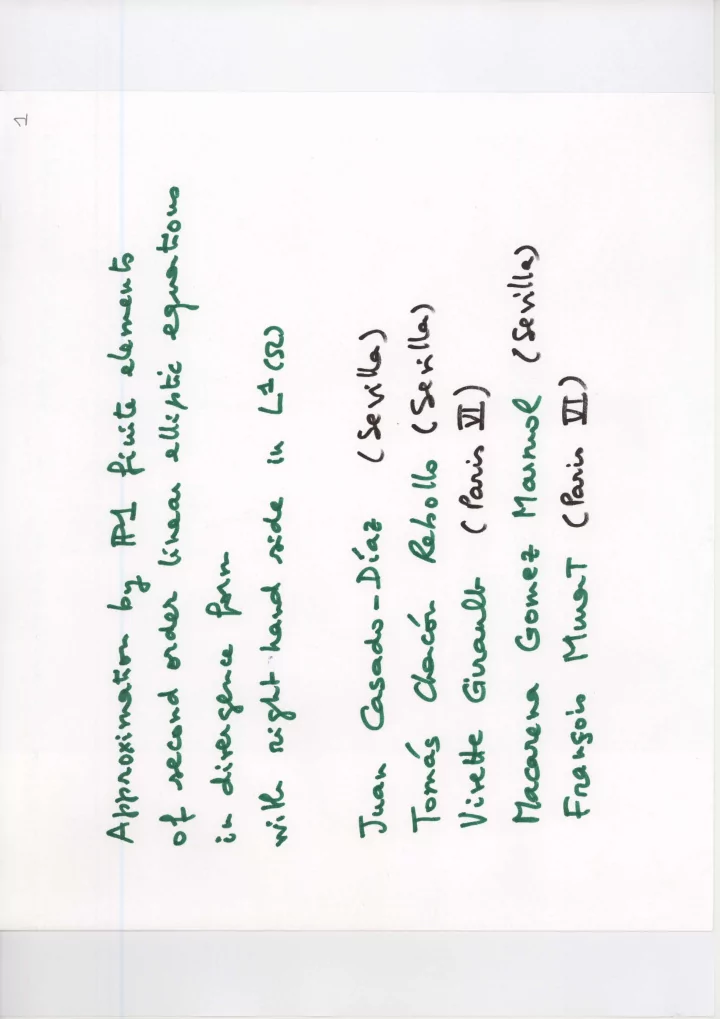 1
Approximation by P1 finite elements
of second order linear elliptic equations
in divergence form
with right-hand side in L¹(Ω)
Juan Casado-Díaz (Sevilla)
Tomás Chacón Rebollo (Sevilla)
Vivette Girault (Paris VI)
Macarena Gomez Marmol (Sevilla)
François MuraT (Paris VI)